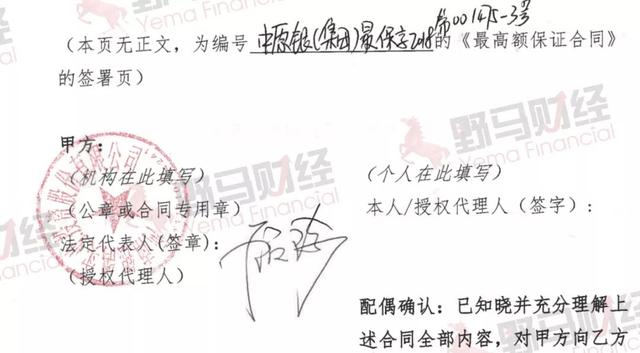 （本页无正文，为编号 中原银(集团)最保字2018第001475-3号 的《最高额保证合同》
的签署页）
甲方：
（机构在此填写）
（公章或合同专用章）
法定代表人(签章)：
（授权代理人）
（个人在此填写）
本人/授权代理人（签字）：
配偶确认：已知晓并充分理解上
述合同全部内容，对甲方向乙方
野马财经
Yema Financial
野马财经
Yema Financial
野马财经
Yema Financial